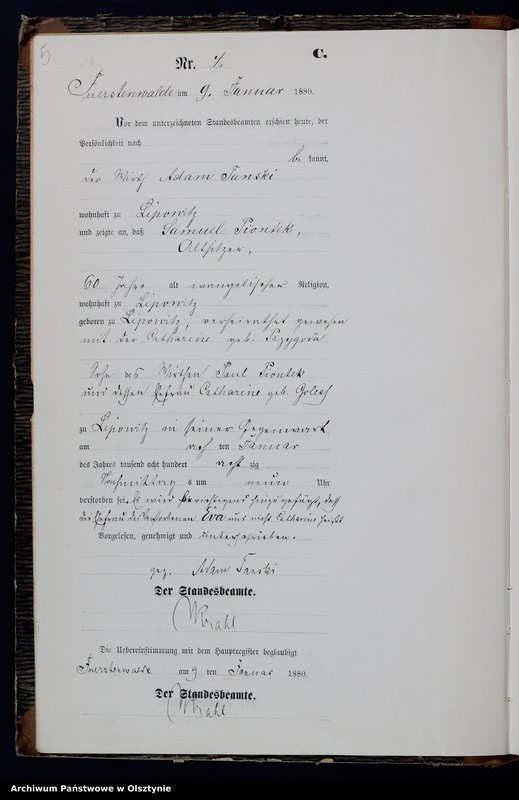 5
C.
Nr. 4.
Fuerstenwalde am 9. Januar 1880.
Vor dem unterzeichneten Standesbeamten erschien heute, der
Persönlichkeit nach
be kannt,
der Wirth Adam Janski
wohnhaft zu Lipowitz
und zeigte an, daß Samuel Piontek,
Altsitzer,
60 Jahre alt evangelischer Religion,
wohnhaft zu Lipowitz
geboren zu Lipowitz, verheirathet gewesen
mit der Catharine geb. Przygoda
Sohn des Wirthen Paul Piontek
und dessen Ehefrau Catharine geb.
zu Lipowitz in seiner Gegenwart
am acht ten Januar
des Jahres tausend acht hundert acht zig
Nachmittag s um neun Uhr
verstorben sei. Es wird berichtigend hinzugefügt, daß
die Ehefrau des Verstorbenen Eva und nicht Catharine heißt
Vorgelesen, genehmigt und unterschrieben.
gez. Adam Janski
Der Standesbeamte.
Die Uebereinstimmung mit dem Hauptregister beglaubigt.
Fuerstenwalde am 9 ten Januar 1880.
Der Standesbeamte.
Archiwum Państwowe w Olsztynie